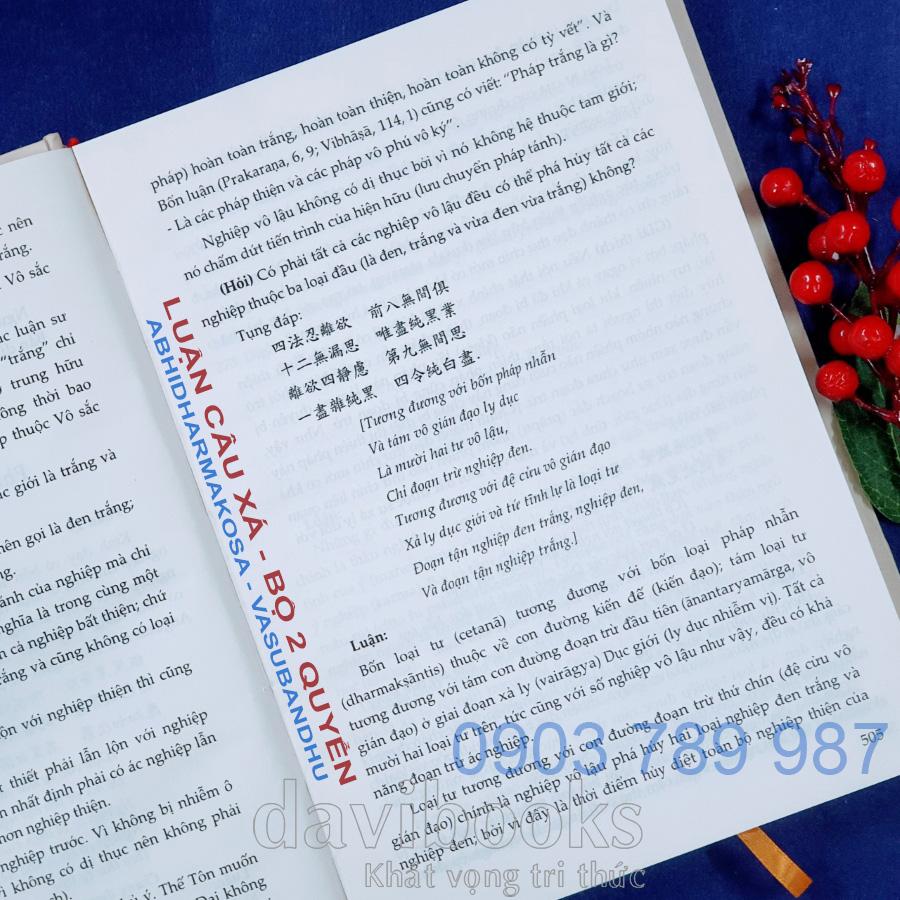 c nên
trắng.
Vô sắc
ác luận sư
"trắng" chỉ
ở trung hữu
đồng thời bao
p thuộc Vô sắc
c giới là trắng và
nên gọi là đen trắng;
ng.
ánh của nghiệp mà chỉ
nghĩa là trong cùng một
n cả nghiệp bất thiện; chứ
rắng và cũng không có loại
ộn với nghiệp thiện thì cũng
t thiết phải lẫn lộn với nghiệp
n nhất định phải có ác nghiệp lẫn
hơn nghiệp thiện.
nghiệp trước. Vì không bị nhiễm ô
ì không có dị thục nên không phải
h).
ý. Thế Tôn muốn
Đại không
pháp) hoàn toàn trắng, hoàn toàn thiện, hoàn toàn không có tỳ vết". Và
Bổn luận (Prakaraṇa, 6, 9; Vibhāṣā, 114, 1) cũng có viết: "Pháp trắng là gì?
- Là các pháp thiện và các pháp vô phú vô ký".
Nghiệp vô lậu không có dị thục bởi vì nó không hệ thuộc tam giới;
nó chấm dứt tiến trình của hiện hữu (lưu chuyển pháp tánh).
(Hỏi) Có phải tất cả các nghiệp vô lậu đều có thể phá hủy tất cả các
nghiệp thuộc ba loại đầu (là đen, trắng và vừa đen vừa trắng) không?
Tụng đáp:
四法忍離欲 前八無間俱
十二無漏思 唯盡純黑業
離欲四靜慮 第九無間思
一盡雜純黑 四令純白盡.
[Tương đương với bốn pháp nhẫn
Và tám vô gián đạo ly dục
Là mười hai tư vô lậu,
Chỉ đoạn trừ nghiệp đen.
Tương đương với đệ cửu vô gián đạo
Xả ly dục giới và tứ tĩnh lự là loại tư
Đoạn tận nghiệp đen trắng, nghiệp đen,
Và đoạn tận nghiệp trắng.]
Luận:
Bốn loại tư (cetanā) tương đương với bốn loại pháp nhẫn
(dharmakṣāntis) thuộc về con đường kiến đế (kiến đạo); tám loại tư
tương đương với tám con đường đoạn trừ đầu tiên (ānantaryamārga, vô
gián đạo) ở giai đoạn xả ly (vairāgya) Dục giới (ly dục nhiễm vị). Tất cả
mười hai loại tư trên, tức cũng với số nghiệp vô lậu như vậy, đều có khả
năng đoạn trừ ác nghiệp.
Loại tư tương đương với con đường đoạn trừ thứ chín (đệ cửu vô
gián đạo) chính là nghiệp vô lậu phá hủy hai loại nghiệp đen trắng và
nghiệp đen; bởi vì đây là thời điểm hủy diệt toàn bộ nghiệp thiện của
505
LUẬN CÂU XÁ - BỘ 2 QUYỂN
ABHIDHARMAKOSA - VASUBANDHU
0903 789 987
davibooks
Khát vọng tri thức